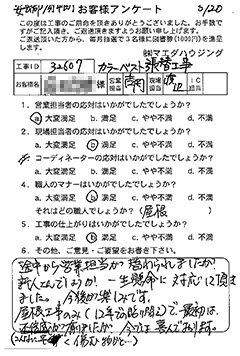 お客様アンケート 3/20
この度は工事のご用命を頂きありがとうございました。お手数で
すがご記入頂き、ご返送頂きますようお願い申し上げます。
ご返送頂いた方から、毎月抽選で3名様に図書券(1000円)を進呈
します。
㈱マエダハウジング
工事ID 32607 カラーベスト張替工事
お客様名 営業担当 現場担当 渡辺 IC担当
1. 営業担当者の応対はいかがでしたでしょうか?
a. 大変満足 b. 満足 c. やや不満 d. 不満
2. 現場担当者の応対はいかがでしたでしょうか?
a. 大変満足 b. 満足 c. やや不満 d. 不満
3. コーディネーターの応対はいかがでしたでしょうか?
a. 大変満足 b. 満足 c. やや不満 d. 不満
4. 職人のマナーはいかがでしたでしょうか?
a. 大変満足 b. 満足 c. やや不満 d. 不満
それはどの職人でしょうか?(屋根 )
5. 工事の仕上がりはいかがでしたでしょうか?
a. 大変満足 b. 満足 c. やや不満 d. 不満
6. その他、ご意見・ご要望をお書き下さい。
途中から営業担当が替わられましたが、
新人さんでしたが一生懸命に対応して頂き
ました。今後が楽しみです。
屋根工事のみ(12年前 )で、最初は
今では喜んでおります。